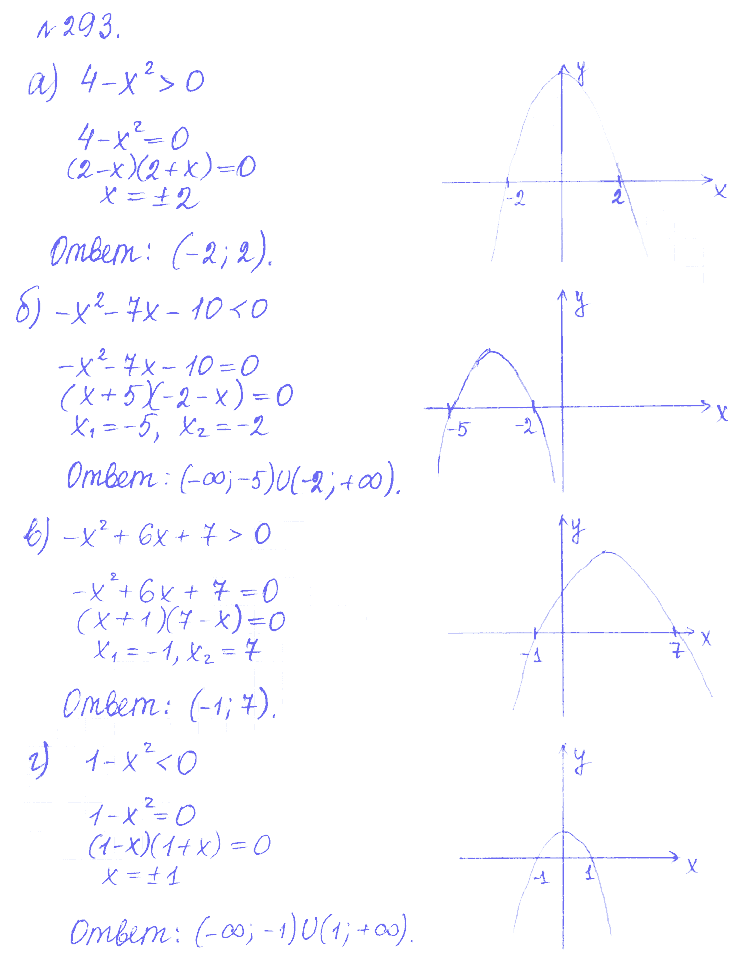 №293.
а) 4-x²>0
4-x²=0
(2-x)(2+x)=0
x=±2
Ответ: (-2; 2).
y
x
-2
2
б) -x²-7x-10<0
-x²-7x-10=0
(x+5)(-2-x)=0
x₁=-5, x₂=-2
Ответ: (-∞; -5)∪(-2; +∞).
y
x
-5
-2
в) -x²+6x+7>0
-x²+6x+7=0
(x+1)(7-x)=0
x₁=-1, x₂=7
Ответ: (-1; 7).
y
x
-1
7
г) 1-x²<0
1-x²=0
(1-x)(1+x)=0
x=±1
Ответ: (-∞; -1)∪(1; +∞).
y
x
-1
1